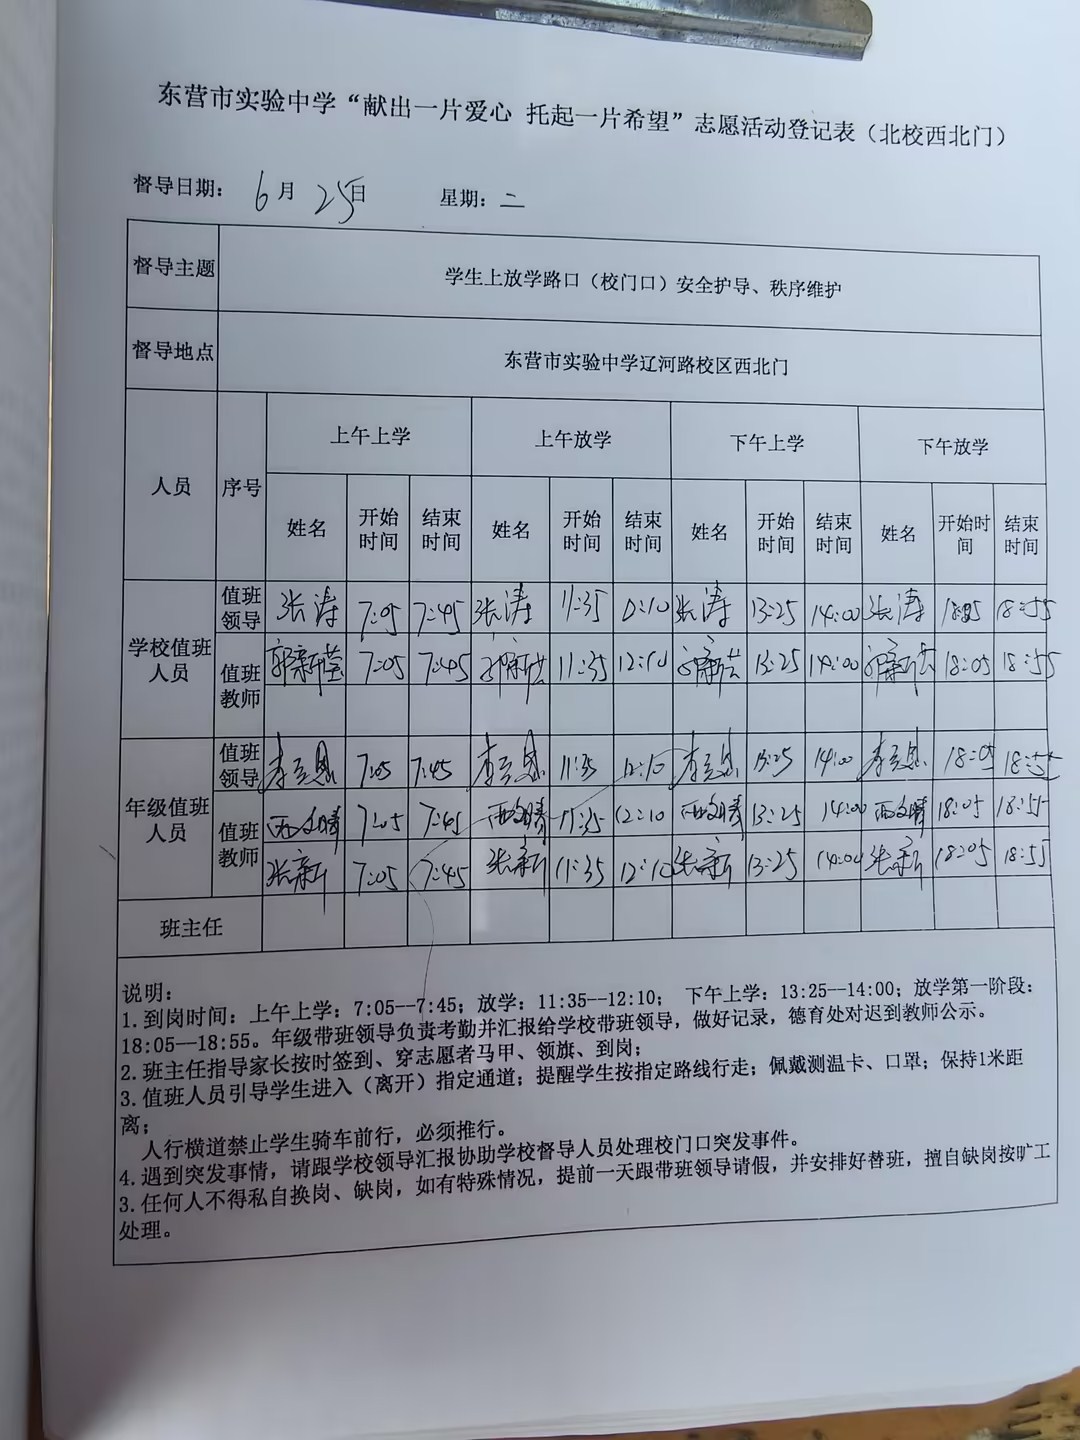 东营市实验中学“献出一片爱心 托起一片希望”志愿活动登记表（北校西北门）
督导日期： 6月 25日 星期：二
督导主题 学生上放学路口（校门口）安全护导、秩序维护
督导地点 东营市实验中学辽河路校区西北门
人员 序号 上午上学 上午放学 下午上学 下午放学
姓名 开始时间 结束时间 姓名 开始时间 结束时间 姓名 开始时间 结束时间 姓名 开始时间 结束时间
学校值班人员 值班领导 张涛 7:05 7:45 张涛 11:35 张涛 13:25 14:00 张涛 18:55
值班教师 郭新莹 7:05 7:45 11:35 12:10 13:25 14:00 18:05 18:55
年级值班人员 值班领导 7:05 7:45 11:35 12:10 13:25 14:00 18:05 18:55
值班教师 7:05 7:45 11:35 12:10 13:25 14:00 18:05 18:55
张新 7:05 7:45 张新 11:35 12:10 张新 13:25 14:00 张新 18:05 18:55
班主任
说明：
1.到岗时间：上午上学：7:05--7:45；放学：11:35--12:10； 下午上学：13:25--14:00；放学第一阶段：
18:05--18:55。年级带班领导负责考勤并汇报给学校带班领导，做好记录，德育处对迟到教师公示。
2.班主任指导家长按时签到、穿志愿者马甲、领旗、到岗；
3.值班人员引导学生进入（离开）指定通道；提醒学生按指定路线行走；佩戴测温卡、口罩；保持1米距
离；
人行横道禁止学生骑车前行，必须推行。
4.遇到突发事情，请跟学校领导汇报协助学校督导人员处理校门口突发事件。
3.任何人不得私自换岗、缺岗，如有特殊情况，提前一天跟带班领导请假，并安排好替班，擅自缺岗按旷工
处理。